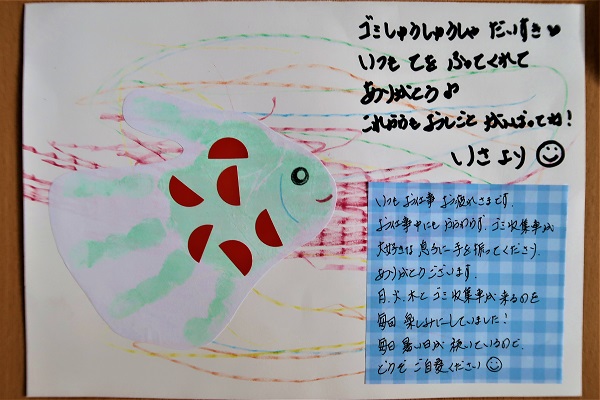 ゴミしゅうしゅうしゃ だいすき♥
いつも てを ふってくれて
ありがとう♪
これからも おしごと がんばってね！
いさより ☺
いつもお仕事 お疲れさまです。
お仕事中にもかかわらず、ゴミ収集車が
大好きな息子に手を振ってくださり、
ありがとうございます。
月、火、木と ゴミ収集車が来るのを
毎回 楽しみにしていました！
毎日 暑い日が 続いているので、
どうぞ ご自愛ください☺